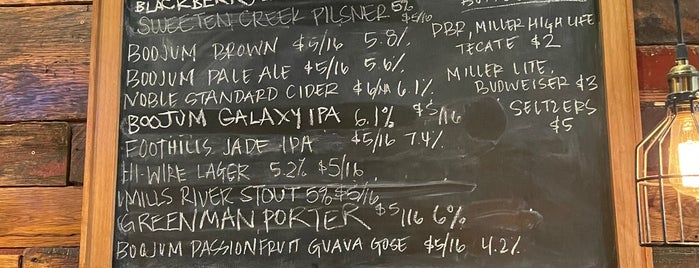 BLACKBERRY
SWEETEN CREEK PILSNER 5% $5/16
BOOJUM BROWN $5/16 5.8%
BOOJUM PALE ALE $5/16 5.6%
NOBLE STANDARD CIDER $6/NA 6.1%
BOOJUM GALAXY IPA 6.1% $5/16
FOOTHILLS JADE IPA $5/16 7.4%
HI-WIRE LAGER 5.2% $5/16
MILLS RIVER STOUT 5% $5/16
GREENMAN PORTER $5/16 6%
BOOJUM PASSIONFRUIT GUAVA GOSE $5/16 4.2%
PBR, MILLER HIGH LIFE
TECATE $2
MILLER LITE,
BUDWEISER $3
SELTZERS
$5